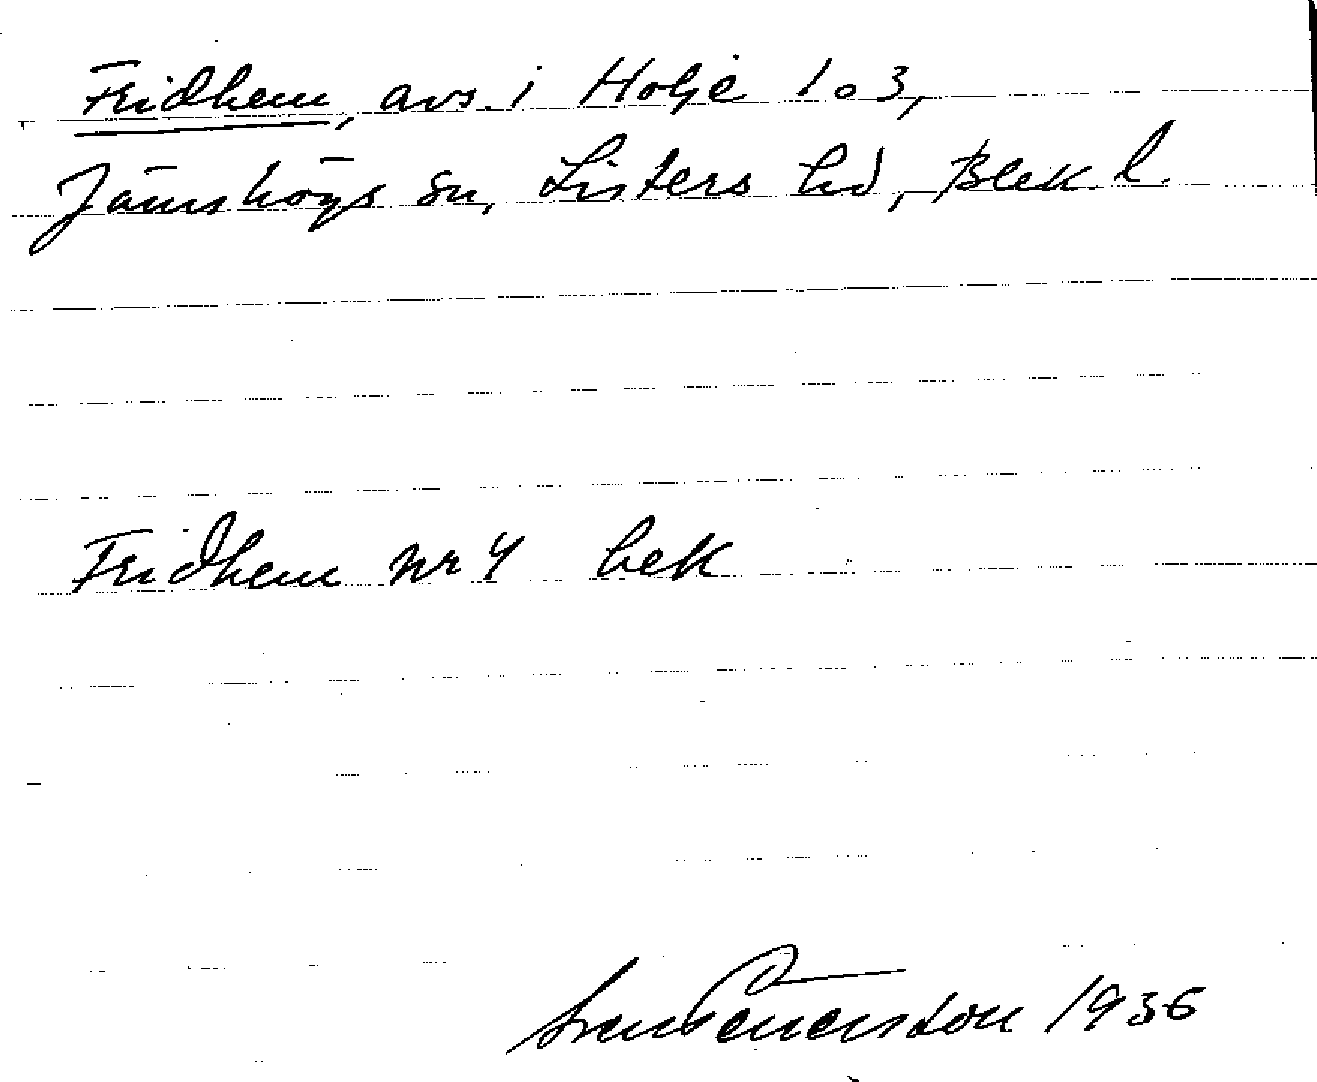 Fridhem, avs. i Holje 1 o 3,
Jämshögs sn, Listers hd, Blek. l.
Fridhem nr 4 bek
Sven 1936